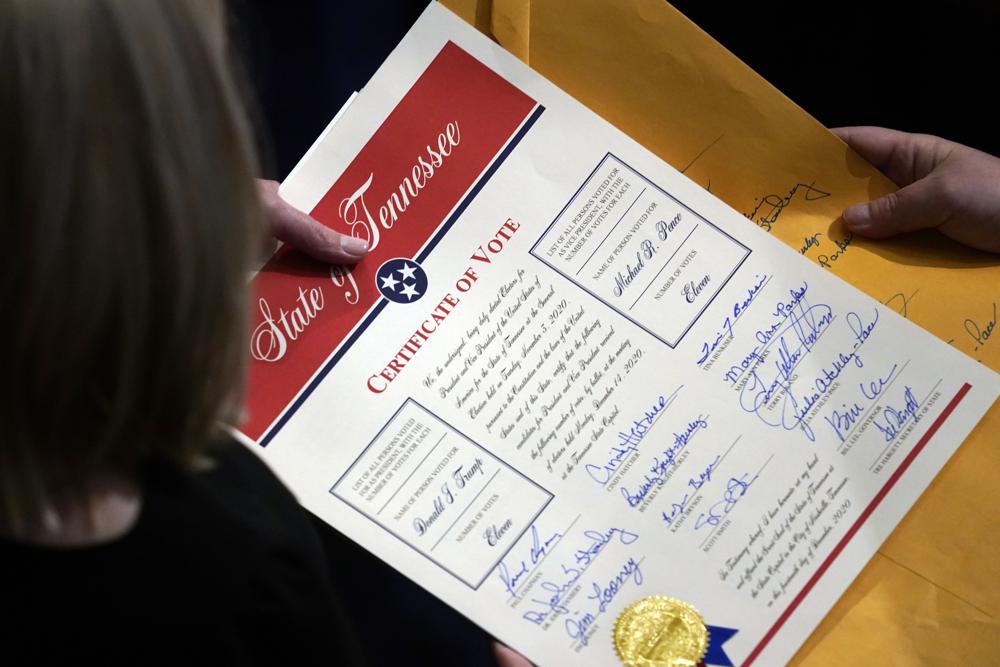 State of Tennessee
CERTIFICATE OF VOTE
We, the undersigned, being duly elected Electors for
President and Vice President of the United States of
America for the State of Tennessee at the General
Election held on Tuesday, November 3, 2020,
pursuant to the Constitution and the laws of the United
States and of this State, certify that the following
candidates for President and Vice President received
the following number of votes, by ballot, at the meeting
of electors held Monday, December 14, 2020,
at the Tennessee State Capitol.
LIST OF ALL PERSONS VOTED
FOR AS PRESIDENT, WITH THE
NUMBER OF VOTES FOR EACH
NAME OF PERSON VOTED FOR
Donald J. Trump
NUMBER OF VOTES
Eleven
LIST OF ALL PERSONS VOTED FOR
AS VICE PRESIDENT, WITH THE
NUMBER OF VOTES FOR EACH
NAME OF PERSON VOTED FOR
Michael R. Pence
NUMBER OF VOTES
Eleven
PAUL CHAPMAN
Dr. John W. Stanbery
Jim Looney
Cindy Hatcher
CINDY HATCHER
Beverly Knight-Hurley
BEVERLY KNIGHT-HURLEY
KATHY BRYSON
SCOTT SMITH
TINA BENKISER
Mary Ann Parks
MARY ANN PARKS
TERRY ROLAND
Julia Atchley-Pace
JULIA ATCHLEY PACE
Bill Lee
BILL LEE, GOVERNOR
TRE HARGETT, SECRETARY OF STATE
In Testimony whereof, I have hereunto set my hand
and affixed the Great Seal of the State of Tennessee at
the State Capitol in the City of Nashville, Tennessee,
on the fourteenth day of December, 2020